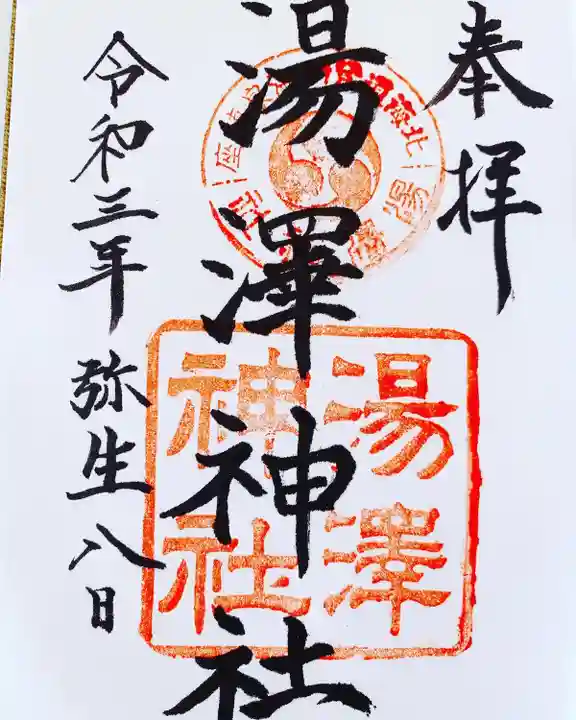 奉拝
湯澤神社
令和三年弥生八日
湯澤
神社